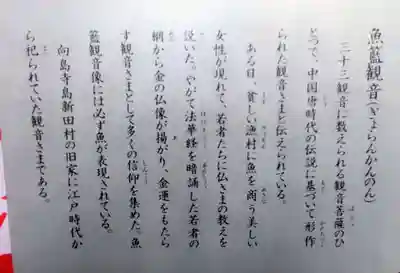 魚籃観音(ぎょらんかんのん)
三十三観音に数えられる観音菩薩のひ
とつで、中国唐時代の伝説に基づいて形作
られた観音さまと伝えられている。
ある日、貧しい漁村に魚を商う美しい
女性が現れて、若者たちに仏さまの教えを
説いた。やがて法華経を暗誦した若者の
網から金の仏像が揚がり、金運をもたら
す観音さまとして多くの信仰を集めた。魚
籃観音像には必ず魚が表現されている。
向島寺島新田村の旧家に江戸時代か
ら祀られていた観音さまである。